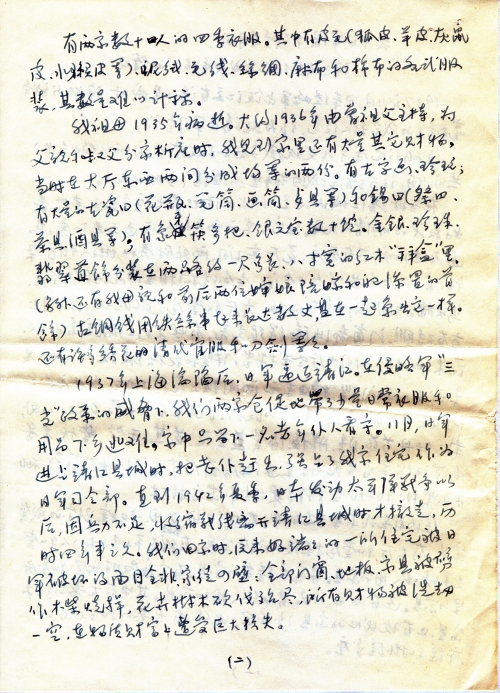 有两家数十口人的四季衣服。其中有皮毛(狐皮、羊皮、灰鼠
皮、小狼皮等)、呢绒、毛线、丝绸、麻布和棉布的各式服
装,其数量难以计称。
我祖母1935年病逝。大约1936年由曾祖父主持,为
父亲和叔父分家析产时,我见到家里还有大量其它财物。
当时在大厅东西两间分成均等的两份。有古字画、珍玩;
有大量的古瓷口(花瓶、笔筒、画筒、桌具等)和锡口(祭口、
茶具酒具等)。有象牙筷多把、银元宝数十锭。金银、珍珠、
翡翠首饰分装在两只各约一尺多长、八寸宽的红木"拜盒"里。
(另外还有我母亲和前后两位婶娘陪嫁和祀添置的首
饰)古铜钱用铁丝串起来长达数丈甚在一起象龙一样。
还有许多绣花的清代官服和刀剑等。
1937年上海沦陷后,日军逼近靖江。在侵略军"三
光"政策的威胁下,我们两家仓促地带了少量日常衣服和
用品下乡逃难。家中只留下一名老年仆人看守。11月,日军
进占靖江县城时,把老仆赶走,强占了我家住宅作为
日军司令部。直到1942年夏季,日本发动太平洋战争以
后,因兵力不足,收缩战线离开靖江县城时才撤走,历
时四年多之久。我们回家时,原来好端端的一所住宅被日
军破坏的面目全非家徒四壁:全部门窗、地板、家具被劈
作木柴烧掉,花卉树木砍伐殆尽,所有财物被洗劫
一空,在物质财富上遭受巨大损失。
(二)